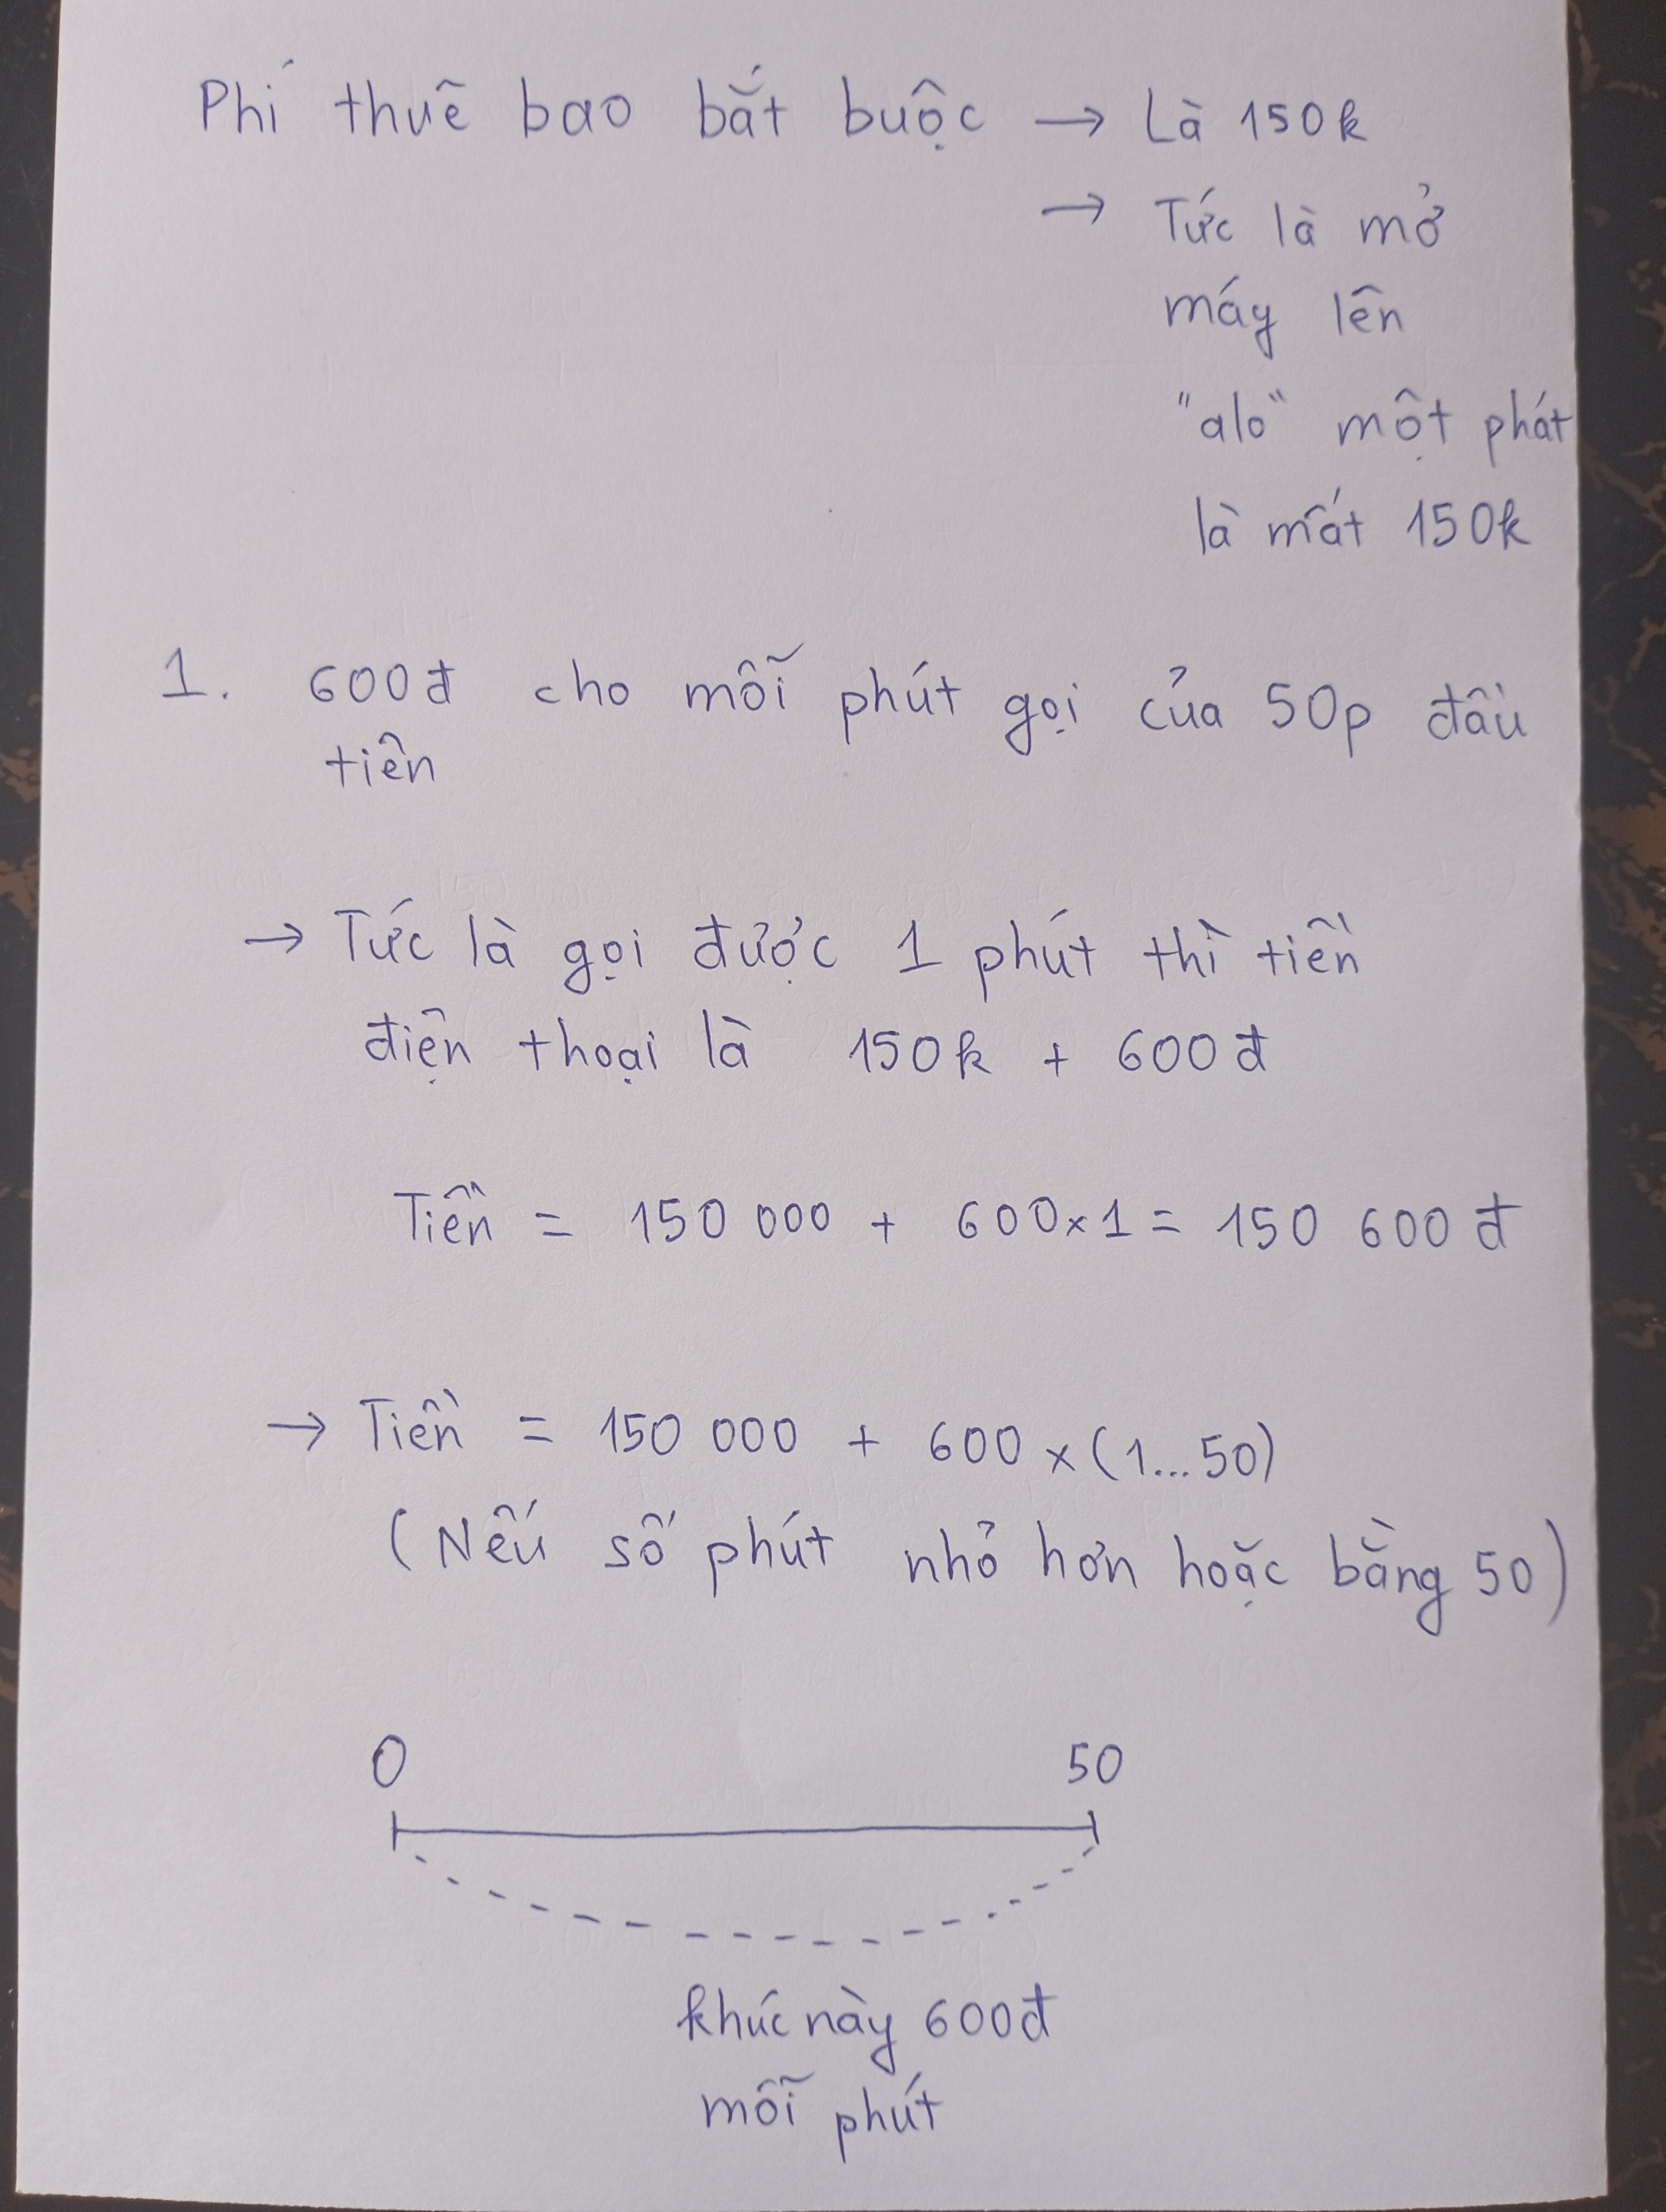 Phí thuê bao bắt buộc → Là 150k
→ Tức là mở
máy lên
"alo" một phát
là mất 150k
1. 600đ cho mỗi phút gọi của 50p đầu
tiên
→ Tức là gọi được 1 phút thì tiền
điện thoại là 150k + 600đ
Tiền = 150 000 + 600×1 = 150 600 đ
→ Tiền = 150 000 + 600 × (1...50)
(Nếu số phút nhỏ hơn hoặc bằng 50)
0 50
khúc này 600đ
mỗi phút